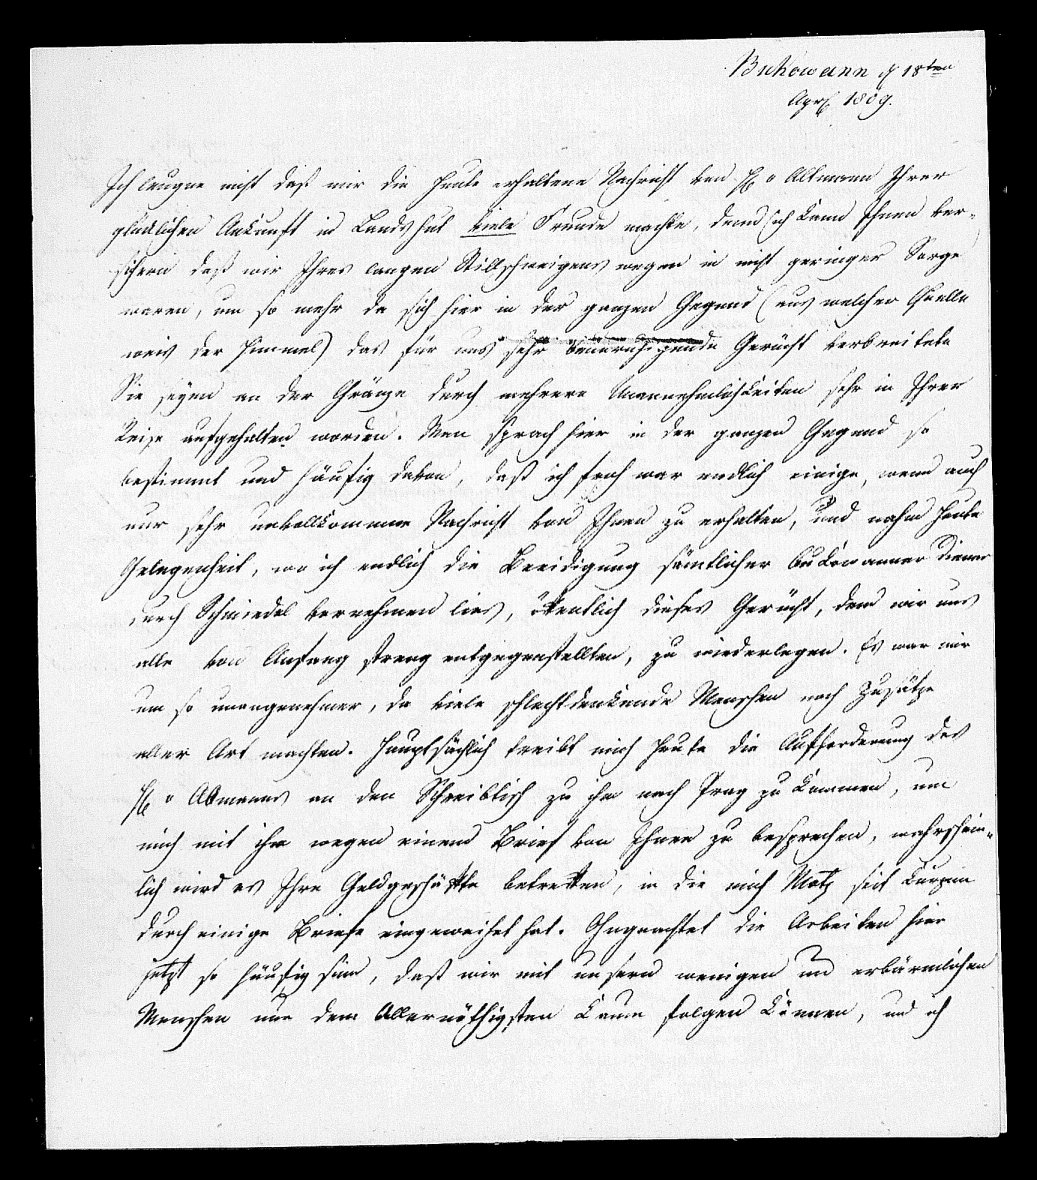 Bukowann d 18ten
Aprl 1809.
Ich leugne nicht daß mir die heute erhaltene Nachricht von H v Altmann Ihrer
glüklichen Ankunft in Landshut viele Freude machte, denn ich kann Ihnen ver-
sichern daß wir Ihres langen Stillschweigens wegen in nicht geringer Sorge
waren, um so mehr da sich hier in der ganzen Gegend (aus welcher Quelle
weis der Himmel) das für uns sehr beunruhigende Gerücht verbreitete
Sie seyen an der Gränze durch mehrere Unannehmlichkeiten sehr in Ihrer
Reise aufgehalten worden. Man sprach hier in der ganzen Gegend so
bestimmt und häufig davon, daß ich froh war endlich einige, wenn auch
nur sehr unvollkommene Nachricht von Ihnen zu erhalten, und nahm heute
Gelegenheit, wo ich endlich die Beeidigung sämtlicher Bukowanner Diener
durch Schmiedel vornehmen lies, öffentlich dieses Gerücht, dem wir uns
alle von Anfang streng entgegenstellten, zu wiederlegen. Es war mir
um so unangenehmer, da viele schlechtdenkende Menschen noch Zusätze
aller Art machten. Hauptsächlich treibt mich heute die Aufforderung des
H v Altmanns an den Schreibtisch zu ihm nach Prag zu kommen, um
mich mit ihm wegen einem Brief von Ihnen zu besprechen, wahrschein-
lich wird es Ihre Geldgeschäfte betreffen, in die mich Motz seit kurzem
durch einige Briefe eingeweihet hat. Ohgeachtet die Arbeiten hier
jetzt so häufig sind, daß wir mit unsern wenigen und erbärmlichen
Menschen nur dem Allernöthigsten kaum folgen können, und ich